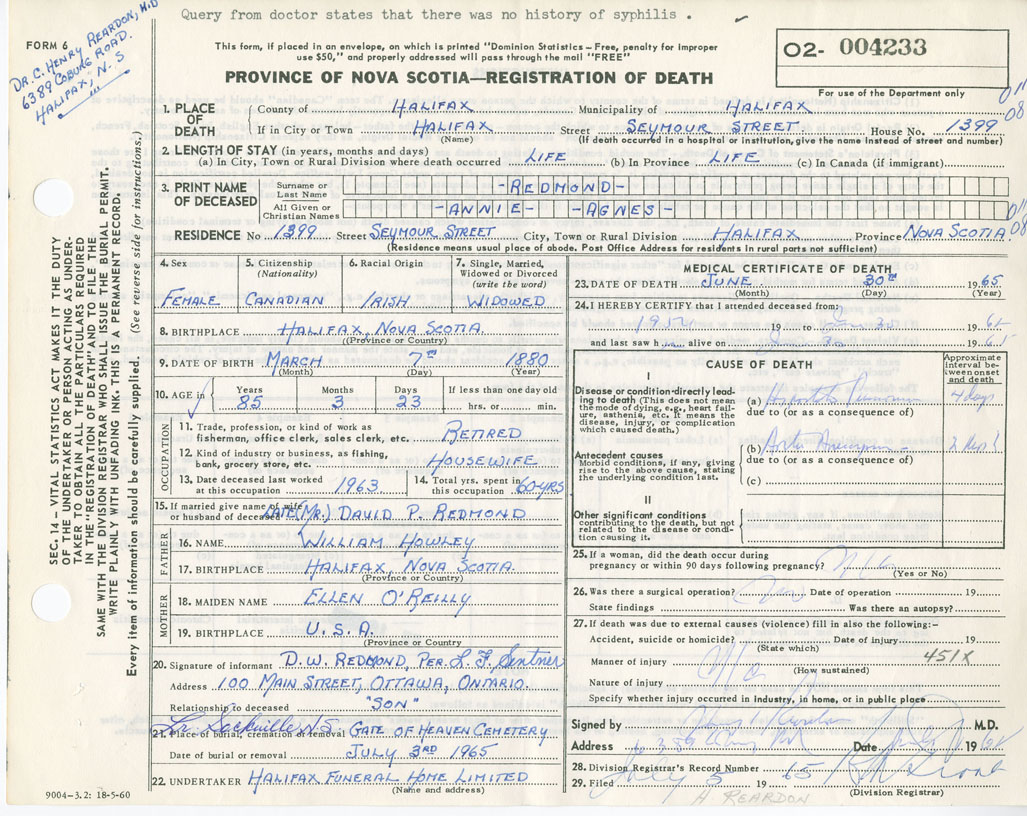 Query from doctor states that there was no history of syphilis .
FORM 6
DR. C. HENRY REARDON, M.D
6389 COBURG ROAD.
HALIFAX, N. S
This form, if placed in an envelope, on which is printed "Dominion Statistics – Free, penalty for improper
use $50," and properly addressed will pass through the mail "FREE"
PROVINCE OF NOVA SCOTIA—REGISTRATION OF DEATH
O2- 004233
For use of the Department only
011
08
1. PLACE OF DEATH
County of HALIFAX Municipality of HALIFAX
If in City or Town HALIFAX Street SEYMOUR STREET House No. 1399
(Name) (If death occurred in a hospital or institution, give the name instead of street and number)
2. LENGTH OF STAY (in years, months and days)
(a) In City, Town or Rural Division where death occurred LIFE (b) In Province LIFE (c) In Canada (if immigrant)
3. PRINT NAME OF DECEASED
Surname or Last Name -REDMOND-
All Given or Christian Names -ANNIE- -AGNES-
011
08
RESIDENCE No 1399 Street SEYMOUR STREET City, Town or Rural Division HALIFAX Province NOVA SCOTIA
(Residence means usual place of abode. Post Office Address for residents in rural parts not sufficient)
SEC. 14 – VITAL STATISTICS ACT MAKES IT THE DUTY
OF THE UNDERTAKER OR PERSON ACTING AS UNDER-
TAKER TO OBTAIN ALL THE PARTICULARS REQUIRED
IN THE "REGISTRATION OF DEATH" AND TO FILE THE
SAME WITH THE DIVISION REGISTRAR WHO SHALL ISSUE THE BURIAL PERMIT.
WRITE PLAINLY WITH UNFADING INK. THIS IS A PERMANENT RECORD.
Every item of information should be carefully supplied. (See reverse side for instructions.)
4. Sex
FEMALE
5. Citizenship
(Nationality)
CANADIAN
6. Racial Origin
IRISH
7. Single, Married,
Widowed or Divorced
(write the word)
WIDOWED
8. BIRTHPLACE HALIFAX, NOVA SCOTIA.
(Province or Country)
9. DATE OF BIRTH MARCH 7TH 1880
(Month) (Day) (Year)
10. AGE in Years Months Days If less than one day old
85 3 23 hrs. or min.
OCCUPATION
11. Trade, profession, or kind of work as
fisherman, office clerk, sales clerk, etc. RETIRED
12. Kind of industry or business, as fishing,
bank, grocery store, etc. HOUSEWIFE
13. Date deceased last worked
at this occupation 1963
14. Total yrs. spent in
this occupation 60-YRS
15. If married give name of wife
or husband of deceased LATE (MR.) DAVID P. REDMOND
FATHER
16. NAME WILLIAM HOWLEY
17. BIRTHPLACE HALIFAX, NOVA SCOTIA.
(Province or Country)
MOTHER
18. MAIDEN NAME ELLEN O'REILLY
19. BIRTHPLACE U. S. A.
(Province or Country)
20. Signature of informant D. W. REDMOND, PER. L. F. Sentner
Address 100 MAIN STREET, OTTAWA, ONTARIO.
Relationship to deceased "SON"
Sackville N.S.
21. Place of burial, cremation or removal GATE OF HEAVEN CEMETERY
Date of burial or removal JULY 3RD 1965
22. UNDERTAKER HALIFAX FUNERAL HOME LIMITED
(Name and address)
9004-3.2: 18-5-60
MEDICAL CERTIFICATE OF DEATH
23. DATE OF DEATH JUNE 30TH 1965
(Month) (Day) (Year)
24. I HEREBY CERTIFY that I attended deceased from:
19 to 30 19 65
and last saw h alive on 30 19 65
CAUSE OF DEATH
Approximate interval between onset and death
I
Disease or condition directly leading to death (This does not mean the mode of dying, e.g., heart failure, asthenia, etc. It means the disease, injury, or complication which caused death.)
(a) 4 days
due to (or as a consequence of)
Antecedent causes
Morbid conditions, if any, giving rise to the above cause, stating the underlying condition last.
(b)
due to (or as a consequence of)
(c)
II
Other significant conditions
contributing to the death, but not related to the disease or condition causing it.
25. If a woman, did the death occur during
pregnancy or within 90 days following pregnancy?
(Yes or No)
26. Was there a surgical operation? Date of operation 19
State findings Was there an autopsy?
27. If death was due to external causes (violence) fill in also the following:–
Accident, suicide or homicide? Date of injury 19
(State which)
451X
Manner of injury
(How sustained)
Nature of injury
Specify whether injury occurred in industry, in home, or in public place
Signed by M.D.
Address Date 19
28. Division Registrar's Record Number
29. Filed July 5 19 65
(Division Registrar)
H REARDON